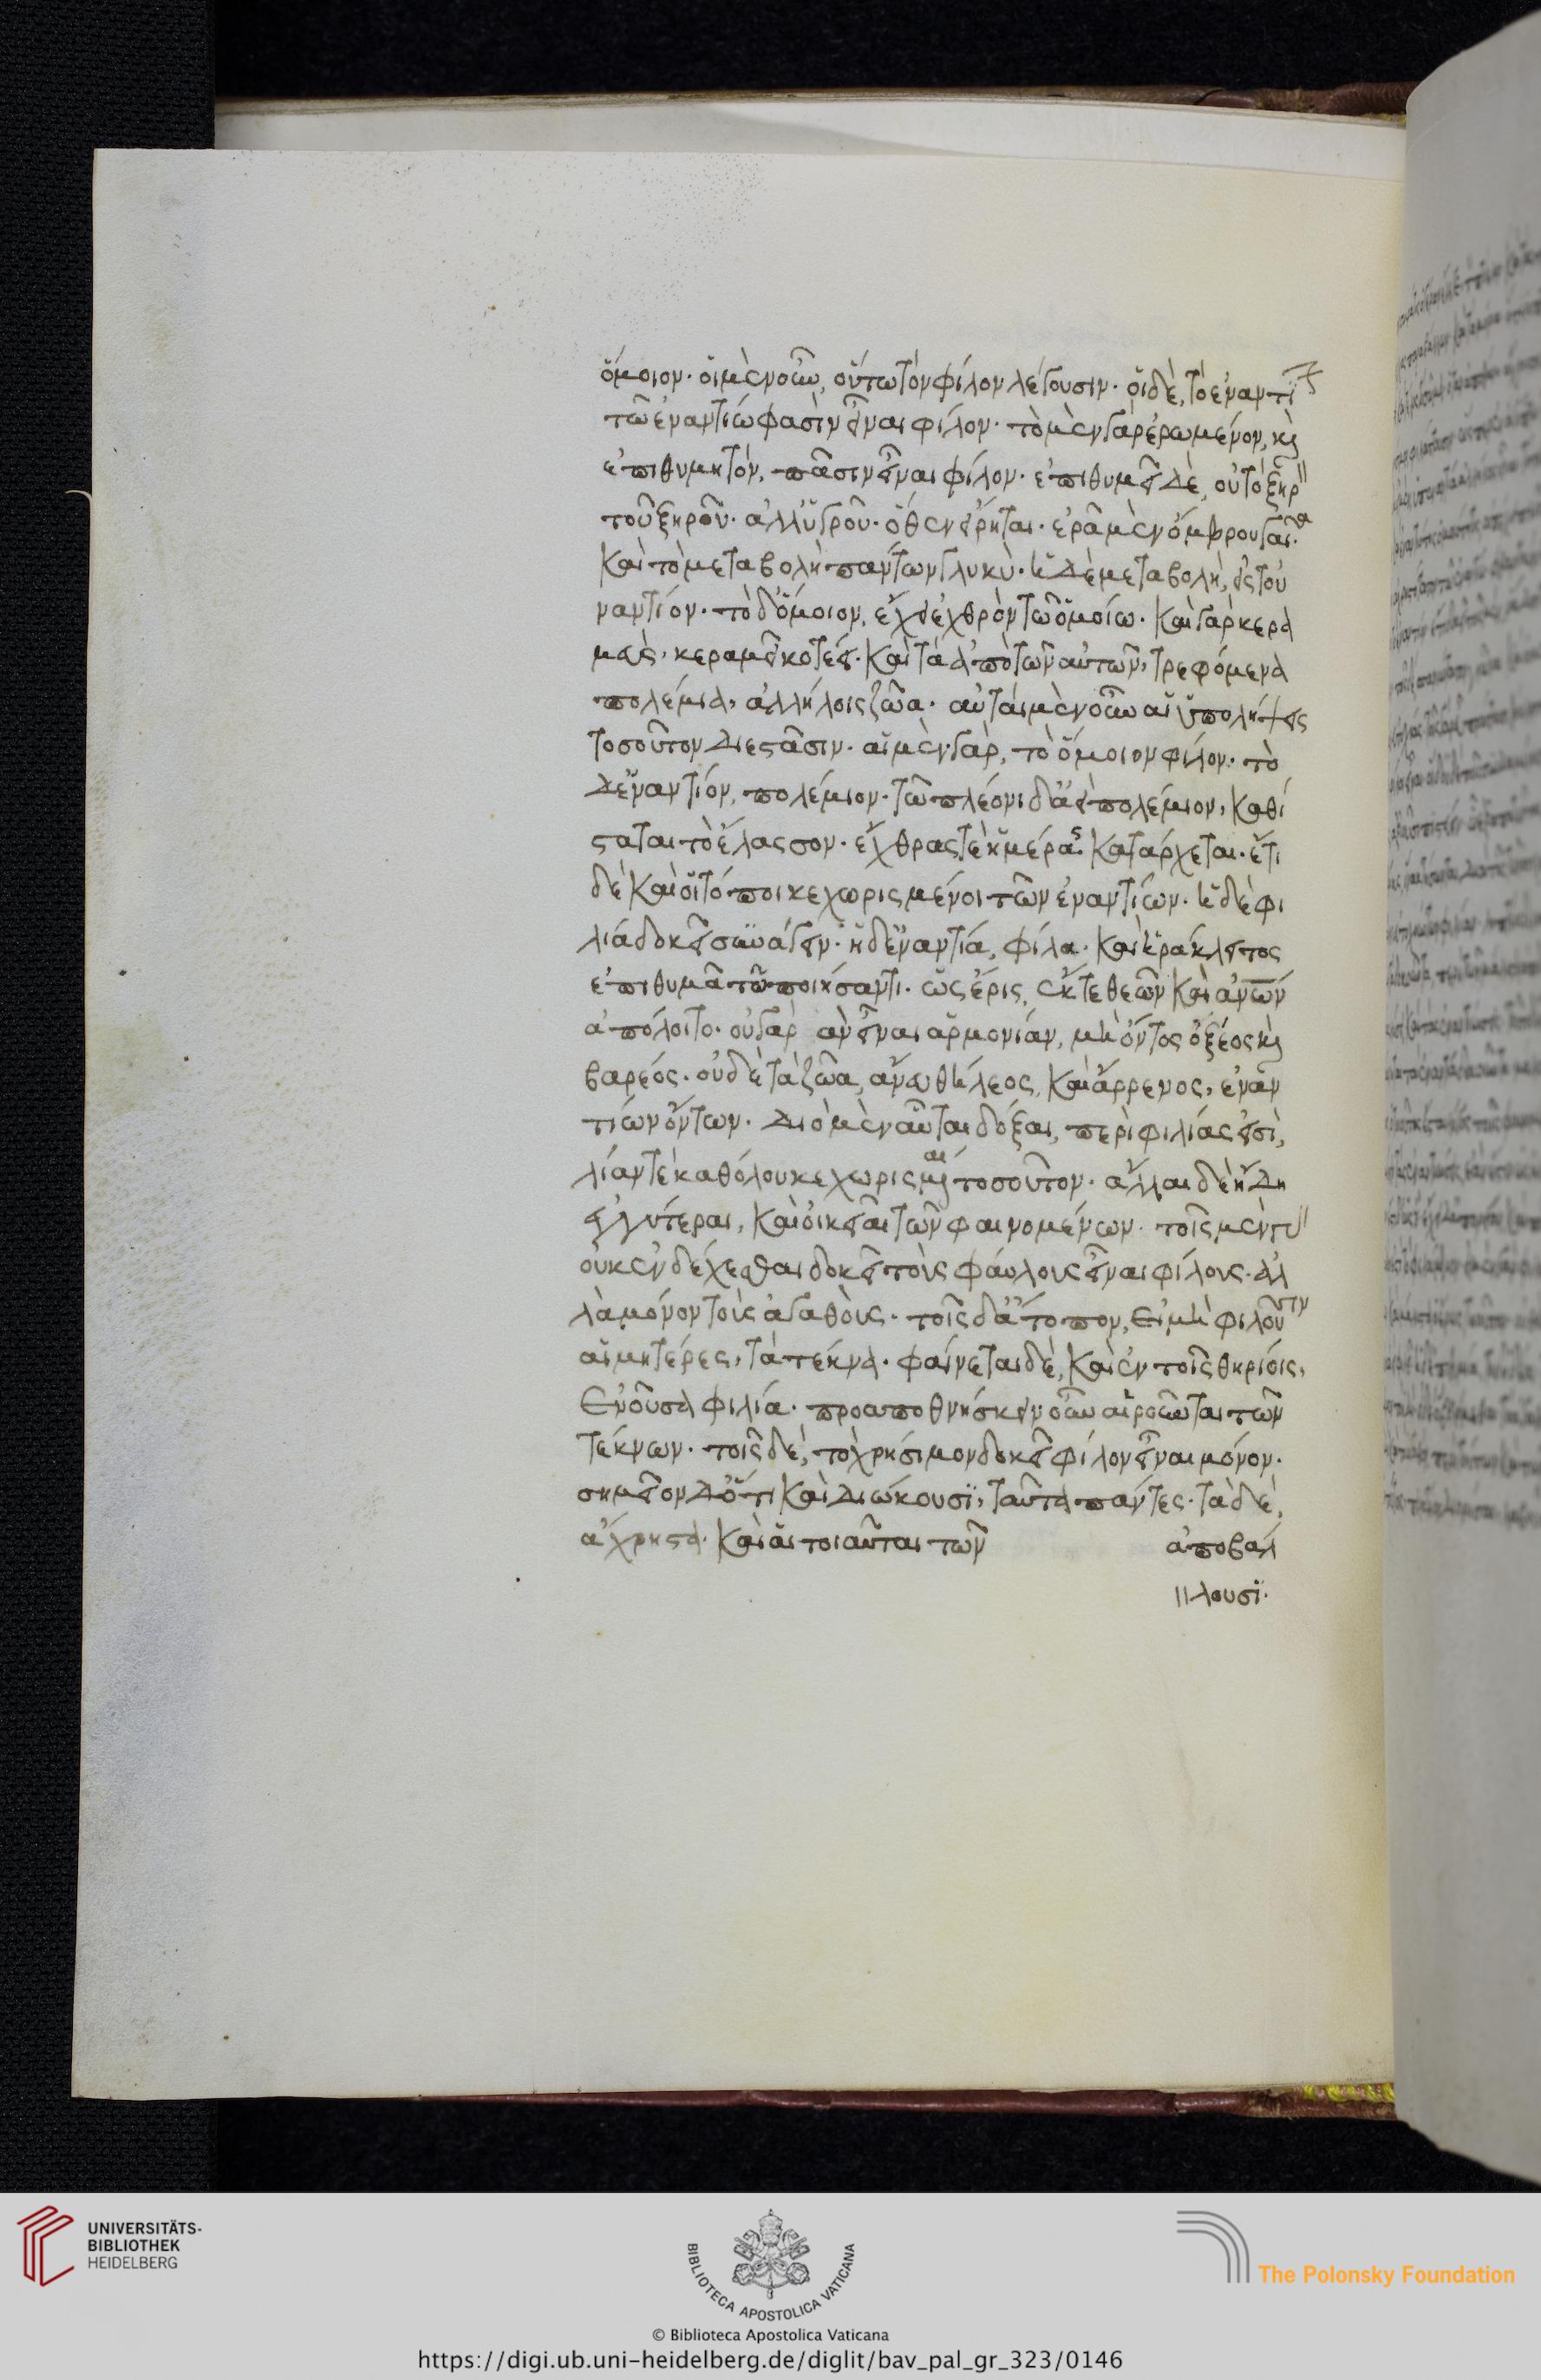 ὅμοιον. οἱ μὲν οὖν, οὕτω τὸν φίλον λέγουσιν. οἱ δὲ, τὸ ἐναντί
τῶ ἐναντίω φασὶν εἶναι φίλον. τὸ μὲν γὰρ ἐρωμένον, κ(αὶ)
ἐπιθυμητὸν, πᾶσιν εἶναι φίλον. ἐπιθυμεῖ δὲ, οὐ τὸ ξηρ
τοῦ ξηροῦ. ἀλλ' ὑγροῦ. ὅθεν εἴρηται. ἐρᾶ μὲν ὄμβρου γαῖα.
καὶ τὸ μεταβολὴ πάντων γλυκὺ. ἡ δὲ μεταβολὴ, εἰς τοὐ
ναντίον. τὸ δ' ὅμοιον, ἐχθρὸν τῶ ὁμοίω. καὶ γὰρ κερα
μεὺς, κεραμεῖ κοτέει. καὶ τὰ ἀπὸ τῶν αὐτῶν, τρεφόμενα
πολέμια, ἀλλήλοις ζῶα. αὗται μὲν οὖν αἱ ὑπολήψεις
τοσοῦτον διεστᾶσιν. αἱ μὲν γὰρ, τὸ ὅμοιον φίλον. τὸ
δ' ἐναντίον, πολέμιον. τῶ πλέονι δ' ἀεὶ πολέμιον, καθί
σταται τὸ ἔλασσον. ἔχθρας τὲ ἡμέρας. κατάρχεται. ἔτι
δὲ καὶ οἱ τόποι κεχωρισμένοι τῶν ἐναντίων. ἡ δὲ φι
λία δοκεῖ συνάγειν. ἡ δ' ἐναντία, φίλα. καὶ ἡράκλειτος
ἐπιθυμᾶ τῶ ποιήσαντι. ὡς ἔρις, ἔκ τε θεῶν καὶ ἀνων
ἀπόλοιτο. οὐ γὰρ ἂν εἶναι ἁρμονίαν, μὴ ὄντος ὀξέος κ(αὶ)
βαρέος. οὐδὲ τὰ ζῶα, ἄνευ θήλεος, καὶ ἄρρενος, ἐναν
τίων ὄντων. δύο μὲν αὗται δόξαι, περὶ φιλίας εἰσὶ,
λίαν τὲ καθόλου κεχωρισμέναι τοσοῦτον. ἄλλαι δὲ ἤδη
ἐγγυτέραι, καὶ οἰκεῖαι τῶν φαινομένων. τοῖς μὲν γ
οὐκ ἐνδέχεσθαι δοκεῖ τοὺς φαύλους εἶναι φίλους. ἀλ
λὰ μόνον τοὺς ἀγαθούς. τοῖς δ' ἄτοπον, εἰ μὴ φιλοῦσιν
αἱ μητέρες, τὰ τέκνα. φαίνεται δὲ, καὶ ἐν τοῖς θηρίοις,
ἐνοῦσα φιλία. προαποθνήσκειν οὖν αἱροῦνται τῶν
τέκνων. τοῖς δὲ, τὸ χρήσιμον δοκεῖ φίλον εἶναι μόνον.
σημεῖον δ' ὅτι καὶ διώκουσι, ταῦτα πάντες. τὰ δὲ,
ἄχρηστα. καὶ αἱ τοιαῦται τῶν ἀποβάλ
λουσι.
UNIVERSITÄTS-
BIBLIOTHEK
HEIDELBERG
BIBLIOTECA APOSTOLICA VATICANA
The Polonsky Foundation
© Biblioteca Apostolica Vaticana
https://digi.ub.uni-heidelberg.de/diglit/bav_pal_gr_323/0146